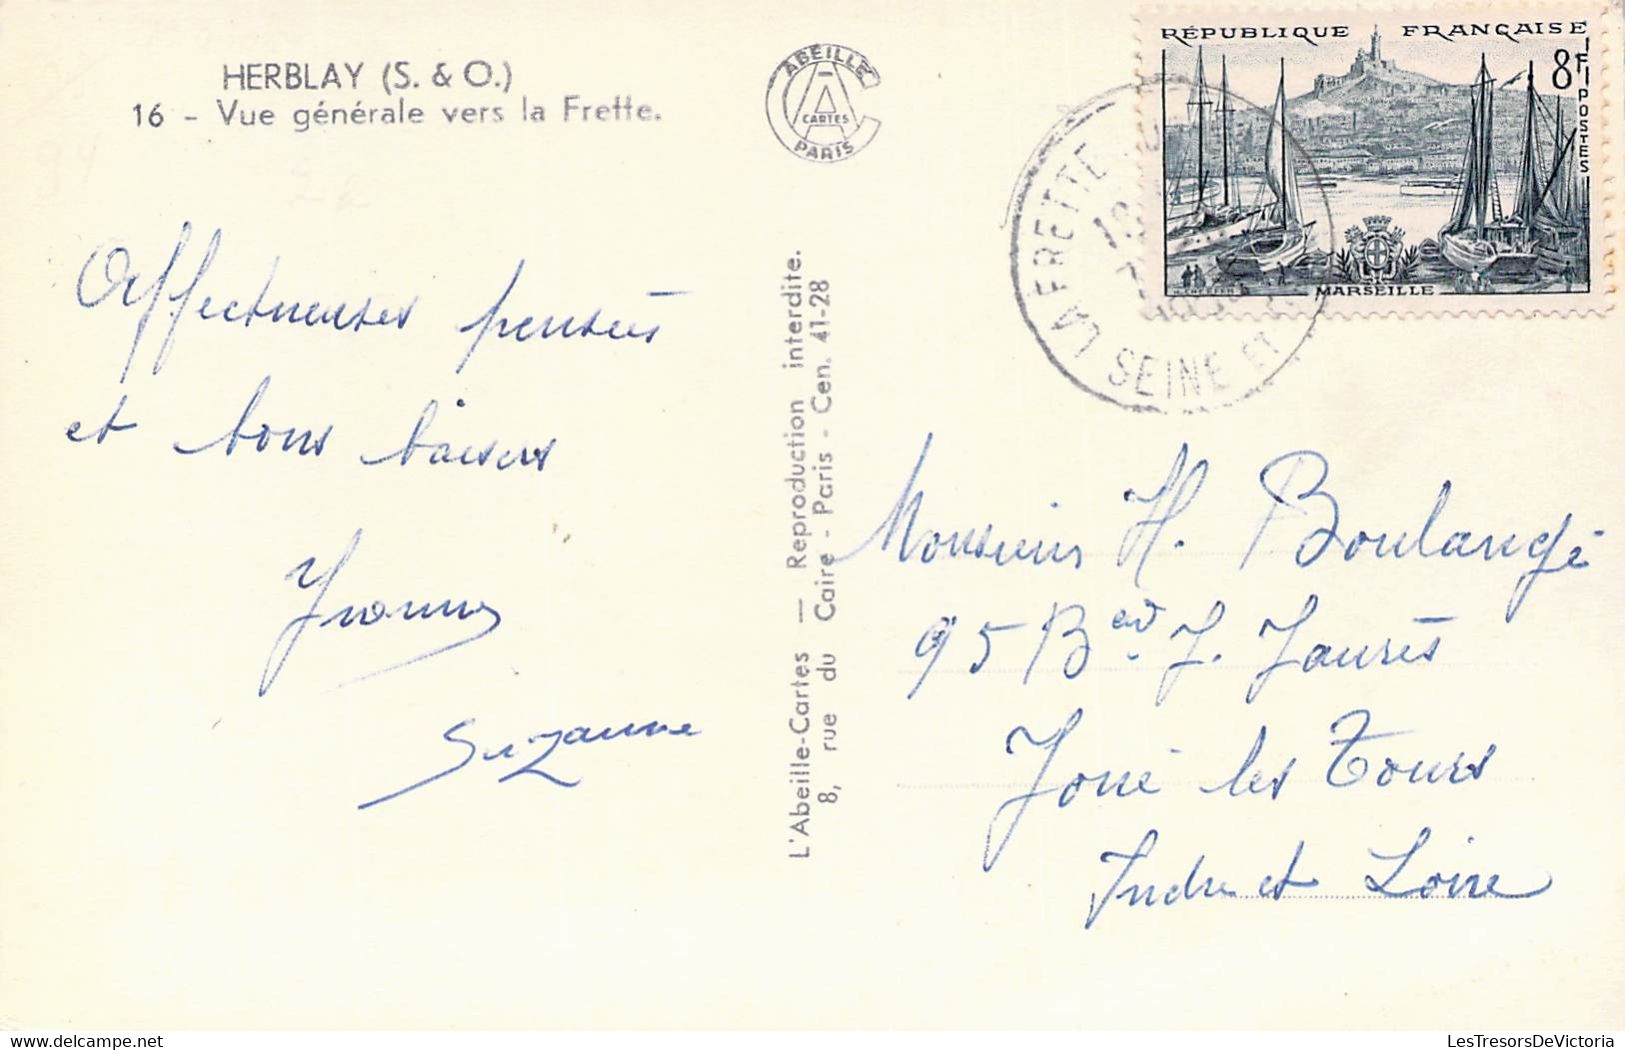 HERBLAY (S. & O.)
16 - Vue générale vers la Frette.
Affectueuses pensées
et bons baisers
Yvonne
Suzanne
ABEILLE
CARTES
PARIS
L'Abeille-Cartes — Reproduction interdite.
8, rue du Caire - Paris - Cen. 41-28
RÉPUBLIQUE FRANÇAISE
8F
POSTES
MARSEILLE
LA FRETTE
SEINE ET
Monsieur H. Boulangé
95 Bevd J. Jaurès
Joué les Tours
Indre et Loire
LesTresorsDeVictoria